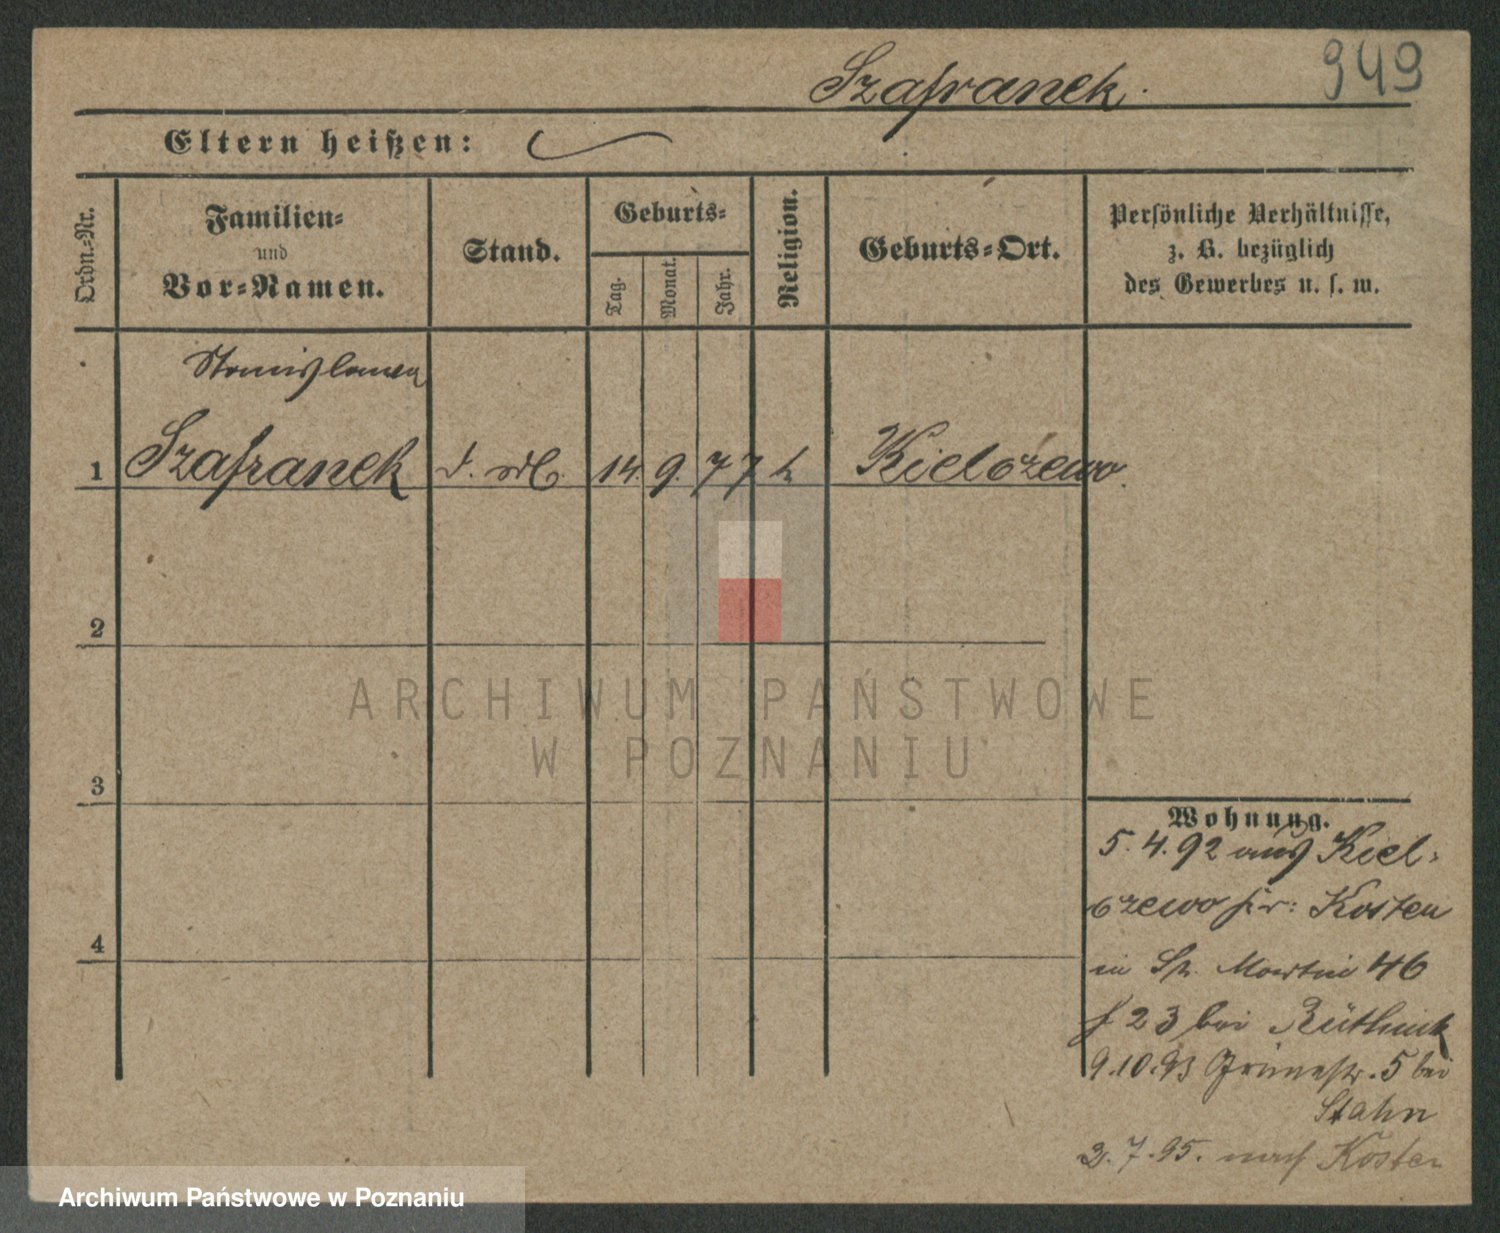 Szafranek.
949
Eltern heißen:
Ordn.-Nr.
Familien-
und
Vor-Namen.
Stand.
Geburts-
Tag.
Monat.
Jahr.
Religion.
Geburts-Ort.
Persönliche Verhältnisse,
z. B. bezüglich
des Gewerbes u. s. w.
Stanislawa
1 Szafranek 14. 9. 77 k Kielczewo.
2
3
4
Wohnung.
5.4.92 aus Kiel-
czewo Kosten
in St. Martin 46
23 bei
9.10.93 Grünestr. 5 bei
Stahn
2.7.95. nach Kosten
ARCHIWUM PAŃSTWOWE
W POZNANIU
Archiwum Państwowe w Poznaniu